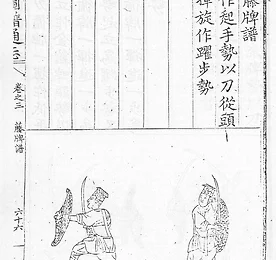 藤牌譜
作起手勢以刀從頭
旋作躍步勢
圖譜通志
卷之三
藤牌譜
六十六